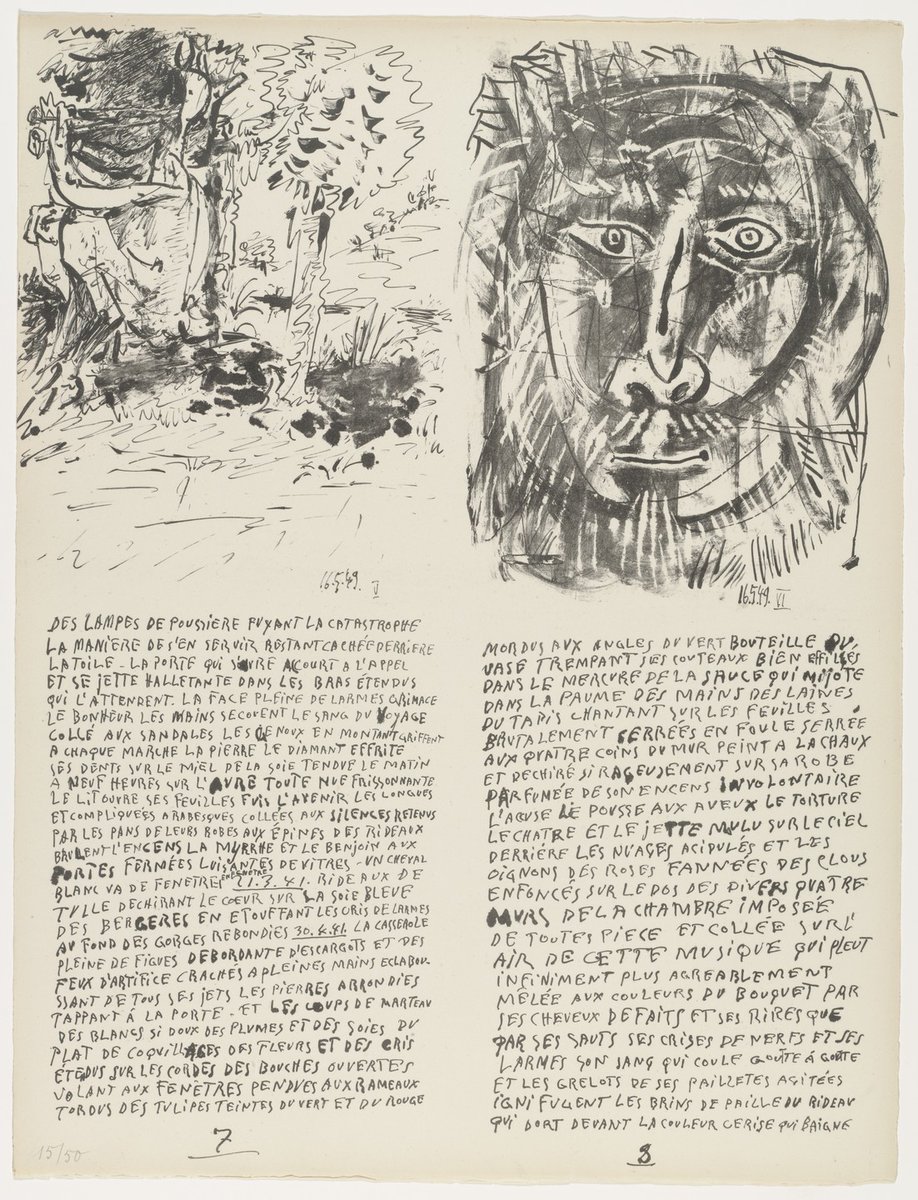 16.5.49. V
DES LAMPES DE POUSSIÈRE FUYANT LA CATASTROPHE
LA MANIÈRE DE S'EN SERVIR RESTANT CACHÉE DERRIERE
LA TOILE - LA PORTE QUI S'OUVRE ACCOURT A L'APPEL
ET SE JETTE HALLETANTE DANS LES BRAS ÉTENDUS
QUI L'ATTENDENT. LA FACE PLEINE DE LARMES GRIMACE
LE BONHEUR LES MAINS SECOUENT LE SANG DU VOYAGE
COLLÉ AUX SANDALES LES GENOUX EN MONTANT GRIFFENT
A CHAQUE MARCHE LA PIERRE LE DIAMANT EFFRITE
SES DENTS SUR LE MIEL DE LA SOIE TENDUE LE MATIN
A NEUF HEURES SUR L'AVRE TOUTE NUE FRISSONNANTE
LE LIT OUVRE SES FEUILLES FUIS L'AVENIR LES LONGUES
ET COMPLIQUÉES ARABESQUES COLLÉES AUX SILENCES RETENUS
PAR LES PANS DE LEURS ROBES AUX ÉPINES DES RIDEAUX
BRULENT L'ENCENS LA MYRRHE ET LE BENJOIN AUX
PORTES FERMÉES LUISANTES DE VITRES - UN CHEVAL
BLANC VA DE FENETRE EN FENETRE 21.3.41. RIDEAUX DE
TULLE DECHIRANT LE COEUR SUR LA SOIE BLEUE
DES BERGERES EN ETOUFFANT LES CRIS DE LARMES
AU FOND DES GORGES REBONDIES 30.4.41. LA CASSEROLE
PLEINE DE FIGUES DEBORDANTE D'ESCARGOTS ET DES
FEUX D'ARTIFICE CRACHÉS A PLEINES MAINS ECLABOU-
SSANT DE TOUS SES JETS LES PIERRES ARRONDIES
TAPPANT Á LA PORTE - ET LES COUPS DE MARTEAU
DES BLANCS SI DOUX DES PLUMES ET DES SOIES DU
PLAT DE COQUILLAGES DES FLEURS ET DES CRIS
ÉTENDUS SUR LES CORDES DES BOUCHES OUVERTES
VOLANT AUX FENÈTRES PENDUES AUX RAMEAUX
TORDUS DES TULIPES TEINTES DU VERT ET DU ROUGE
7
15/50
16.5.49. VI
MORDUS AUX ANGLES DU VERT BOUTEILLE DU
VASE TREMPANT SES COUTEAUX BIEN EFFILÉS
DANS LE MERCURE DE LA SAUCE QUI MIJOTE
DANS LA PAUME DES MAINS DES LAINES
DU TAPIS CHANTANT SUR LES FEUILLES
BRUTALEMENT SERRÉES EN FOULE SERRÉE
AUX QUATRE COINS DU MUR PEINT A LA CHAUX
ET DECHIRÉ SI RAGEUSEMENT SUR SA ROBE
PARFUMÉE DE SON ENCENS INVOLONTAIRE
L'ACUSE LE POUSSE AUX AVEUX LE TORTURE
LE CHATRE ET LE JETTE MULU SUR LE CIEL
DERRIÉRE LES NUAGES ACIDULÉS ET LES
OIGNONS DES ROSES FANNÉES DES CLOUS
ENFONCÉS SUR LE DOS DES DIVERS QUATRE
MURS DE LA CHAMBRE IMPOSÉE
DE TOUTES PIECE ET COLLÉE SUR L'
AIR DE CETTE MUSIQUE QUI PLEUT
INFINIMENT PLUS AGREABLEMENT
MÊLÉE AUX COULEURS DU BOUQUET PAR
SES CHEVEUX DEFAITS ET SES RIRES QUE
PAR SES SAUTS SES CRISES DE NERFS ET SES
LARMES SON SANG QUI COULE GOUTE Á GOUTE
ET LES GRELOTS DE SES PAILLETES AGITÉES
IGNIFUGENT LES BRINS DE PAILLE DU RIDEAU
QUI DORT DEVANT LA COULEUR CERISE QUI BAIGNE
8